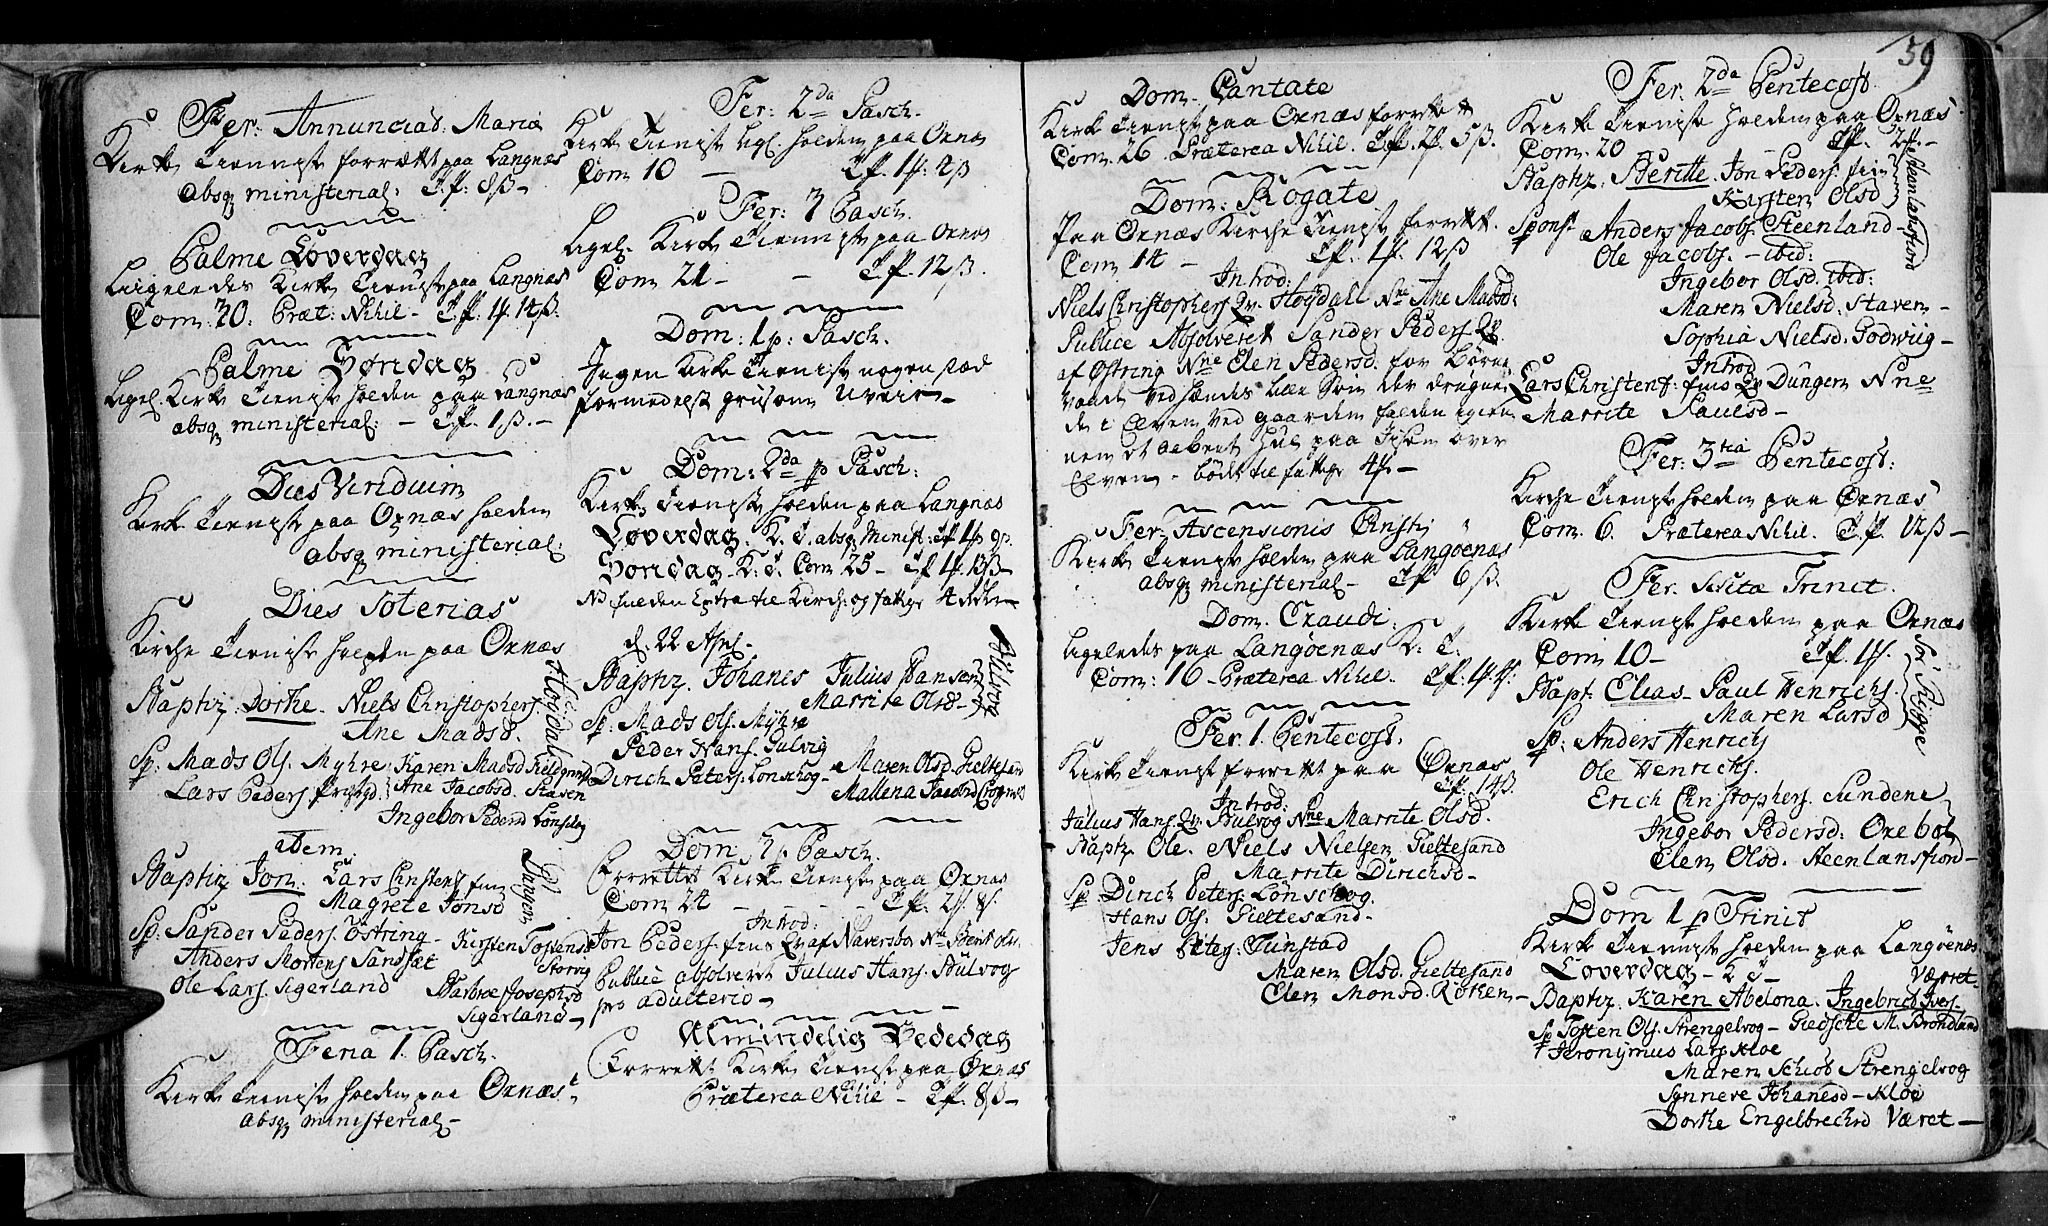 Fer: Annunciat: Mariæ
Kirke Tieniste forrættt paa Langnæs
absq ministerial: Tf: 8ß–
Palme Löverdag
Liigeledes Kirke Tienist paa Langnæs
Com: 30: Præt: Nihil – Tf. 1f. 14ß.
Palme Söndag
Ligel. Kirke Tienist holden paa Langnæs
absq ministerial: – Tf. 1ß.–
Dies Viriduim
Kirke Tieniste paa Oxnæs holden
absq ministerial:
Dies Soterias
Kirche Tieniste holden paa Oxnæs
Baptiz. Dorthe – Niels Christophers.
Ane Madsd.
Höydal
Sp: Mads Ols. Myhre: Karen Madsd
Lars Peders Ane Jacobsd. Staven
Ingebor Pedersd Lönskog
Idem.
Baptiz Jon. Lars Christens
Magrete Jonsd
Dungen
Sp: Sander Peders. Östring – Kirsten
Anders Mortens Sandset
Ole Lars. Sigerland Barbroe Josephsd
Sigerland –
Feria 1. Pasch.
Kirke Tieniste holden paa Oxnæs
absq ministerial –
Fer: 2da Pasch.
Kirke Tienist ligl. holden paa Oxnæs
Com 10 – Tf. 1f. 2ß
Fer: 3 Pasch.
Ligel. Kirke Tienniste paa Oxnæs
Com 21 – – Tf. 12ß.
Dom: 1 p: Pasch.
Ingen Kirke Tienist nogen stæd
formedelst grusom Uveir –
Dom: 2da p Pasch:
Kirke Tieniste holden paa Langnæs
Löverdag. K. T. absq Minist: Tf 1f 9ß.
Söndag – K: T. Com 25 – Tf. 1f. 13ß –
NB falden Extra til Kirche og fattige 4
d. 22 Apr. –
Baptiz. Johanes Julius Hansen
Marrite Olsd –
Bülvog
Sp: Mads Ols. Myhre
Peder Hans. Gulvig
Dirich Peters. Lonskog – Maren Olsd. Gieltesand
Mallena
Dom 3 p Pasch.
Forrettet Kirke Tieniste paa Oxnæs
Com 24 – – – Tf. 2f. 8ß.
Introd:
Jon Peders. fins Qv af Naversbor Nne Berit Ols.
Publie absolveret Julius Hans. Bülvog
pro adulterio –
Almindelig Bededag
Forrettt Kirke Tieniste paa Oxnæs
Præterea Nihil – Tf. 8ß –
39
Dom. Cantate
Kirke Tieniste paa Oxnæs forrettt
Com. 26. Præterea Nihil. Tf. 2f. 5ß.
Dom: Rogate
Paa Oxnæs Kirche Tienist forrettt.
Com 14 – Tf. 1f. 12ß
Introd:
Niels Christophers Qv. Höydall Nne Ane Madsd:
Publice Absolveret Sander Peders Qv
af Östring Nne Elen Pedersd. for Börne
Vaade ved hændes lille Sön der drugne-
de i Elven ved gaarden falden igien-
nem et aabent Hul paa Isen over
Elven – bödet til fattige 4f –
Fer: Ascensionis Christi
Kirke Tieniste holden paa Langöenæs
absq ministerial – Tf 6ß.
Dom. Exaudi:
Ligeledes paa Langöenæs K: T:
Com: 16 – Præterea Nihil. Tf.
Fer. 1. Pentecost.
Kirke Tieniste forrettt paa Oxnæs
Tf: 14ß.
Introd:
Julius Hans. Qv. Bulvog Nne Marrite Olsd.
Baptz Ole. Niels Nielsen Gieltesand
Marrite Dirichsd –
Sp. Dirich Peters. Lönschog.
Hans Ols. Gieltesand –
Jens Tünstad
Maren Olsd. Gieltesand
Elen Monsd. Röthen –
Fer. 2da Pentecost.
Kirke Tieniste holden paa Oxnæs
Com. 20 – Tf. 2f. –
Baptiz. Beritte. Jon Peders.
Kirsten Olsd
Steenlansfiord
Spons. Anders Jacobs. Steenland –
Ole Jacobs. – ibid:
Ingebor Olsd. ibid:
Maren Nielsd. Staven –
Sophia Nielsd. Godwiig –
Introd
Lars Christens: fins Qv Düngen Nne
Marrite Paulsd –
Fer: 3tia Pentecost:
Kirche Tieniste holden paa Oxnæs
Com. 6. Præterea Nihil. Tf. 12ß –
Fer. Trinit.
Kirke Tieniste holden paa Oxnæs
Com 10 – Tf. 1f.
Bapt. Elias – Paul Henrichs.
Maren Larsd
Sp: Anders Henrichs
Ole Henrichs.
Erich Christophers. Sundene
Ingebor Pedersd: Oxebol
Elen Olsd. Steenlansfiord –
Dom 1 p Trinit
Kirke Tienniste holden paa Langöenæs
Löverdag – Været.
Baptiz. Karen Abelona. Ingebrict Ivers.
Sp Tosten Ols. Strengelvog – Giedsche M. Brondland
Jeronymus Lars Kloe
Maren Schiob Strengelvog
Synneve Johanesd – Kloe
Dorthe Engelbrechtd Været –